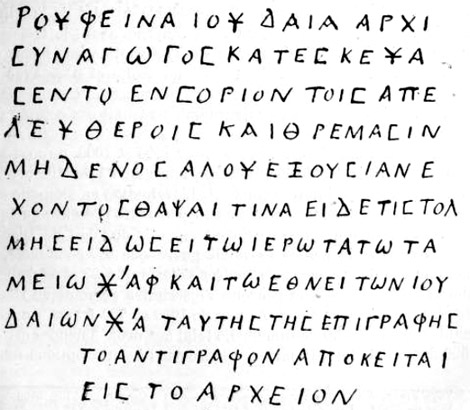 ΡΟΥΦΕΙΝΑ ΙΟΥΔΑΙΑ ΑΡΧΙ
CΥΝΑΓΩΓΟC ΚΑΤΕCΚΕΥΑ
CΕΝ ΤΟ ΕΝCΟΡΙΟΝ ΤΟΙC ΑΠΕ
ΛΕΥΘΕΡΟΙC ΚΑΙ ΘΡΕΜΑCΙΝ
ΜΗΔΕΝΟC ΑΛΟΥ ΕΞΟΥCΙΑΝ Ε
ΧΟΝΤΟC ΘΑΨΑΙ ΤΙΝΑ ΕΙ ΔΕ ΤΙC ΤΟΛ
ΜΗCΕΙ ΔΩCΕΙ ΤΩ ΙΕΡΩΤΑΤΩ ΤΑ
ΜΕΙΩ 𐆖 ʹΑΦ ΚΑΙ ΤΩ ΕΘΝΕΙ ΤΩΝ ΙΟΥ
ΔΑΙΩΝ 𐆖 ʹΑ ΤΑΥΤΗC ΤΗC ΕΠΙΓΡΑΦΗC
ΤΟ ΑΝΤΙΓΡΑΦΟΝ ΑΠΟΚΕΙΤΑΙ
ΕΙC ΤΟ ΑΡΧΕΙΟΝ